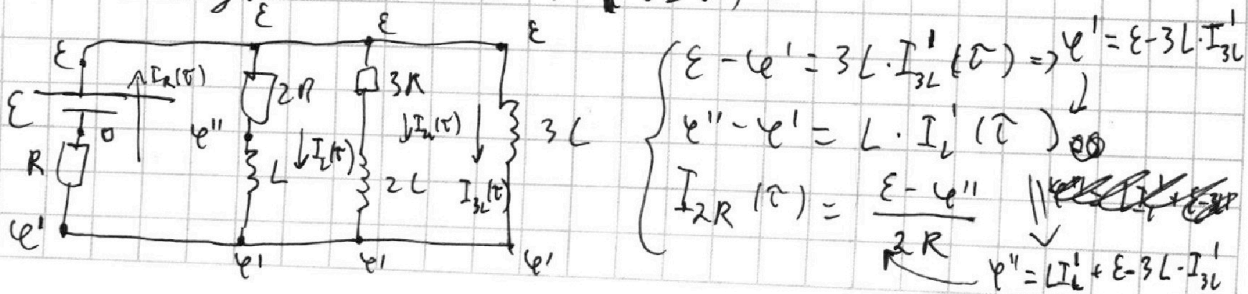 ε ε ε
ε
ε I_R(τ) 2R 3R
0 φ'' ↓I_L(τ) ↓I_{2L}(τ) 3L
R L 2L I_{3L}(τ)
φ' φ' φ' φ'
ε - φ' = 3L · I'_{3L}(τ) => φ' = ε - 3L · I'_{3L}
φ'' - φ' = L · I'_L(τ)
I_{2R}(τ) = \frac{ε - φ''}{2R}
φ'' = LI'_L + ε - 3L · I'_{3L}